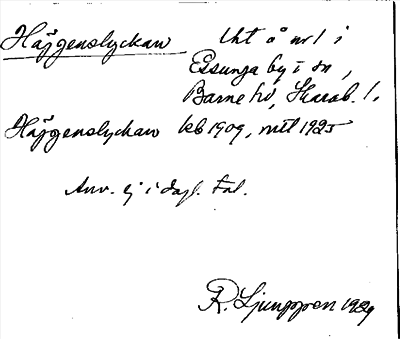 Häjgenslyckan Uht å nr 1 i
Essunga by i dn,
Barne hd, Skarab. l.
Häjgenslyckan kb 1909, mtl 1925
Anv. ej i dagl. tal.
R. Ljunggren 1929